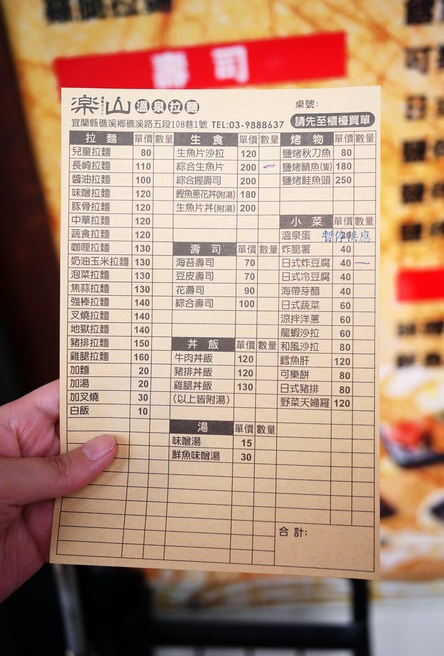 壽司
樂山 溫泉拉麵
桌號:
宜蘭縣礁溪鄉礁溪路五段108巷1號 TEL:03-9888637
請先至櫃檯買單
拉麵 單價 數量
兒童拉麵 80
長崎拉麵 110
醬油拉麵 100
味噌拉麵 120
豚骨拉麵 120
中華拉麵 120
蔬食拉麵 120
咖哩拉麵 130
奶油玉米拉麵 130
泡菜拉麵 130
焦蒜拉麵 130
強棒拉麵 140
叉燒拉麵 140
地獄拉麵 140
豬排拉麵 150
雞腿拉麵 160
加麵 20
加湯 20
加叉燒 30
白飯 10
生食 單價 數量
生魚片沙拉 120
綜合生魚片 200
綜合握壽司 200
鰹魚蔥花丼(附湯) 180
生魚片丼(附湯) 200
壽司 單價 數量
海苔壽司 70
豆皮壽司 70
花壽司 90
綜合壽司 100
丼飯 單價 數量
牛肉丼飯 120
豬排丼飯 120
雞腿丼飯 130
(以上皆附湯)
湯 單價 數量
味噌湯 15
鮮魚味噌湯 30
烤物 單價 數量
鹽烤秋刀魚 80
鹽烤鯖魚(飯) 180
鹽烤鮭魚頭 250
小菜 單價 數量
溫泉蛋
炸脆薯 40
日式炸豆腐 40
日式冷豆腐 40
海帶芽醋 40
日式蔬菜 60
涼拌洋蔥 60
龍蝦沙拉 60
和風沙拉 80
鱈魚肝 120
可樂餅 80
日式豬排 80
野菜天婦羅 120
合計: